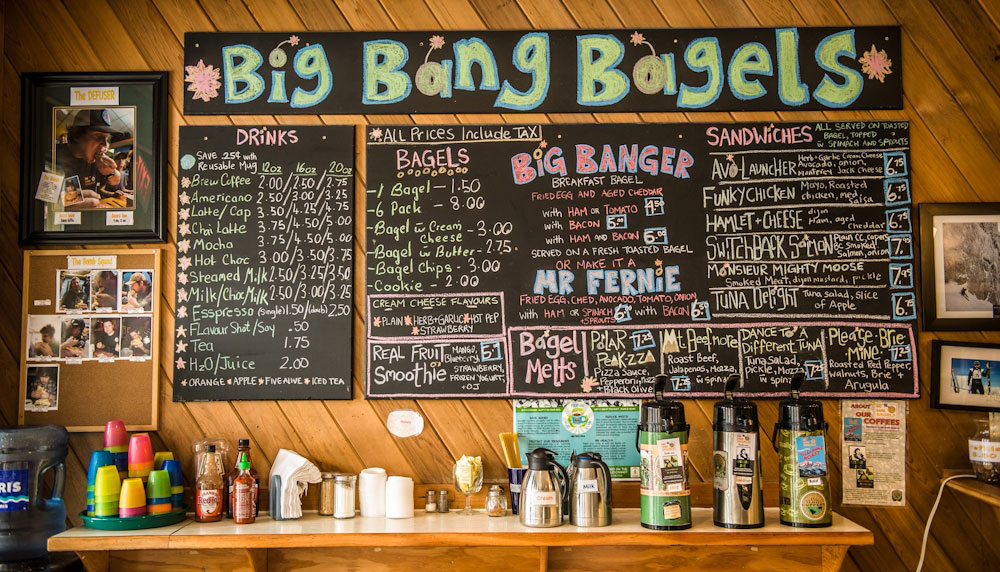 Big Bang Bagels
The DEFUSER
The Bomb Squad
DRINKS
SAVE .25¢ with
Reusable Mug
12oz 16oz 20oz
Brew Coffee 2.00/2.50/2.75
Americano 2.50/3.00/3.25
Latte/Cap 3.50/4.25/4.75
Chai Latte 3.75/4.50/5.00
Mocha 3.75/4.50/5.00
Hot Choc 3.00/3.50/4.00
Steamed Milk 2.50/3.25/3.50
Milk/Choc Milk 2.50/3.00/3.50
Esspresso (single) 1.50/(double) 2.50
Flavour Shot/Soy .50
Tea 1.75
H2O/Juice 2.00
ORANGE APPLE FIVE ALIVE ICED TEA
ALL Prices Include TAX
BAGELS
-1 Bagel - 1.50
-6 Pack - 8.00
-Bagel w Cream
Cheese - 3.00
-Bagel w Butter - 2.75
-Bagel Chips - 3.00
-Cookie - 2.00
CREAM CHEESE FLAVOURS
PLAIN HERB+GARLIC HOT PEP
STRAWBERRY
REAL FRUIT
Smoothie
MANGO,
Blueberry,
STRAWBERRY,
FROZEN YOGURT,
+OJ
BIG BANGER
BREAKFAST BAGEL
FRIED EGG AND AGED CHEDDAR
with HAM or TOMATO 4.50
with BACON 5.00
with HAM AND BACON
SERVED ON A FRESH TOASTED BAGEL
OR MAKE IT A
MR FERNIE
FRIED EGG, CHED, AVOCADO, TOMATO, ONION
with HAM or SPINACH
+SPROUTS
with BACON
SANDWICHES
ALL SERVED ON TOASTED
BAGEL, TOPPED
w SPINACH AND SPROUTS
AVO LAUNCHER
Herb + Garlic Cream Cheese
Avocado, onion,
Monterey Jack Cheese
6.75
FUNKY CHICKEN
Mayo, Roasted
chicken, med
Salsa
6.75
HAMLET + CHEESE
dijon
Ham, aged
cheddar
6.75
SWITCHBACK SALMON
Plain CC, capers
BC Smoked
Salmon, onion
MONSIEUR MIGHTY MOOSE
Smoked Meat, dijon mustard, pickle
TUNA DELIGHT
Tuna salad, slice
of Apple
Bagel
Melts
POLAR
PEAKZZA
Pizza Sauce,
Pepperoni, Mozza
+ Black Olive
Mt. Beefmore
Roast Beef,
Jalapenos, Mozza
w spinach
DANCE TO A
Different TUNA
Tuna Salad,
pickle, Mozza
w spinach
Please Brie
Mine
Roasted Red Pepper,
walnuts, Brie +
Arugula
RedRose
Cream
Milk
ABOUT OUR
COFFEES
RIS